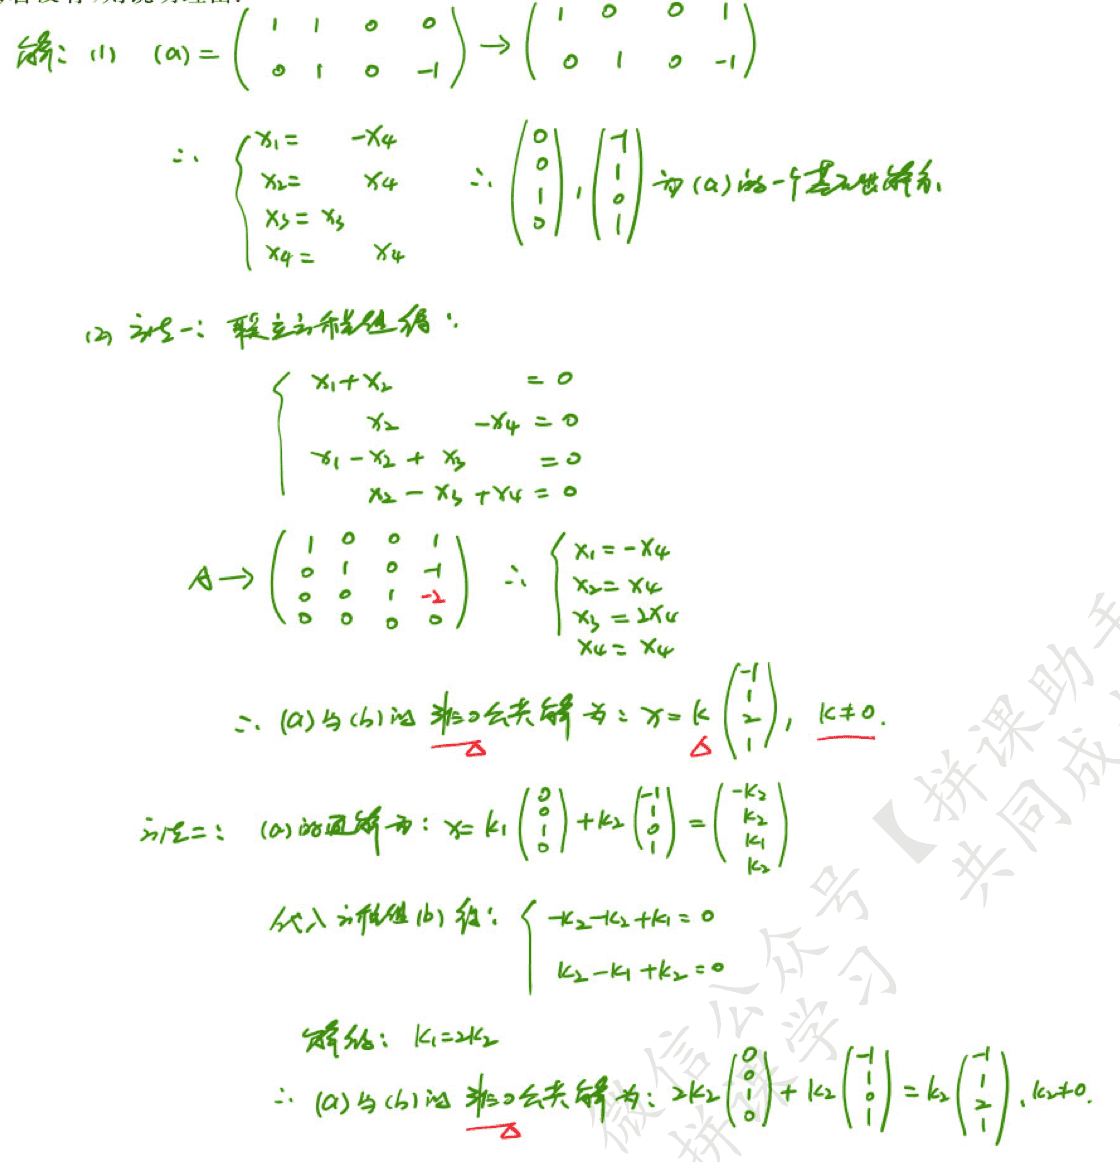 解: (1) (a) = ( 1 1 0 0 ; 0 1 0 -1 ) → ( 1 0 0 1 ; 0 1 0 -1 )
∴ { x₁ = -x₄ ; x₂ = x₄ ; x₃ = x₃ ; x₄ = x₄ ∴ ( 0 0 1 0 ), ( -1 1 0 1 ) 为(a)的一个基础解系.
(2) 方法一: 联立方程组得:
{ x₁ + x₂ = 0
x₂ - x₄ = 0
x₁ - x₂ + x₃ = 0
x₂ - x₃ + x₄ = 0
A → ( 1 0 0 1 ; 0 1 0 -1 ; 0 0 1 -2 ; 0 0 0 0 ) ∴ { x₁ = -x₄ ; x₂ = x₄ ; x₃ = 2x₄ ; x₄ = x₄
∴ (a)与(b)的非0公共解为: x = k ( -1 1 2 1 ), k ≠ 0.
方法二: (a)的通解为: x = k₁ ( 0 0 1 0 ) + k₂ ( -1 1 0 1 ) = ( -k₂ k₂ k₁ k₂ )
代入方程组(b)得: { -k₂ - k₂ + k₁ = 0
k₂ - k₁ + k₂ = 0
解得: k₁ = 2k₂
∴ (a)与(b)的非0公共解为: 2k₂ ( 0 0 1 0 ) + k₂ ( -1 1 0 1 ) = k₂ ( -1 1 2 1 ), k₂ ≠ 0.
微信公众号【拼课助手
拼课学习 共同成